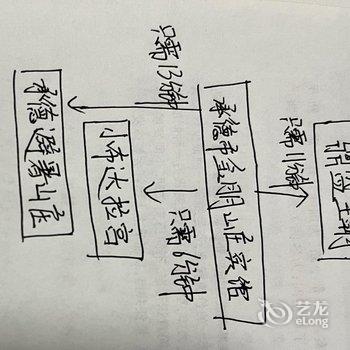 只需11分钟
承德市金明山庄宾馆
只需13分钟
只需6分钟
小布达拉宫
承德避暑山庄
艺龙
eLong